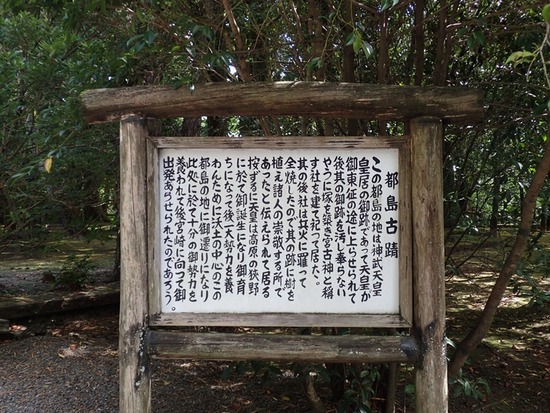 都島古蹟
この都島の地は神武天皇
皇居の御跡であって天皇が
御東征の途に上らせられて
後其の御跡を汚し奉らない
やうに塚を築き宮古神と称
す社を建て祀って居た。
其の後社は兵火に罹って
全焼したので其の跡に樹を
植え諸人の崇敬する所で
あったと伝えられて居る
按ずるに天皇は高原の狭野
に於て御誕生になり御育
ちになって後一大勢力を養
わんために沃土の中心のこの
都島の地に御遷りになり
此処に於て十分の御勢力を
養われて後宮崎に向って御
出発あらせられたのであろう。